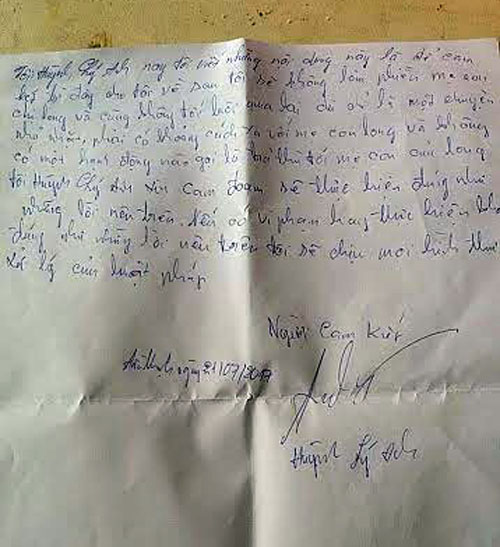 Tôi Huỳnh Lý Anh nay tôi viết những nội dung này là để cam
kết từ đây cho tới về sau tôi sẽ không làm phiền mẹ con
của long và cũng không tới lui qua lại dù chỉ là một chuyện
nhỏ nhặt, phải có khoảng cách xa với mẹ con long và không
có một hành động nào gọi là trả thù tới mẹ con của long
tôi Huỳnh Lý Anh xin cam đoan sẽ thực hiện đúng như
những lời nêu trên. Nếu có vi phạm hay thực hiện không
đúng như những lời nêu trên tôi sẽ chịu mọi hình thức
xử lý của luật pháp
Người Cam Kết
ngày 21/07/2017
Huỳnh Lý Anh